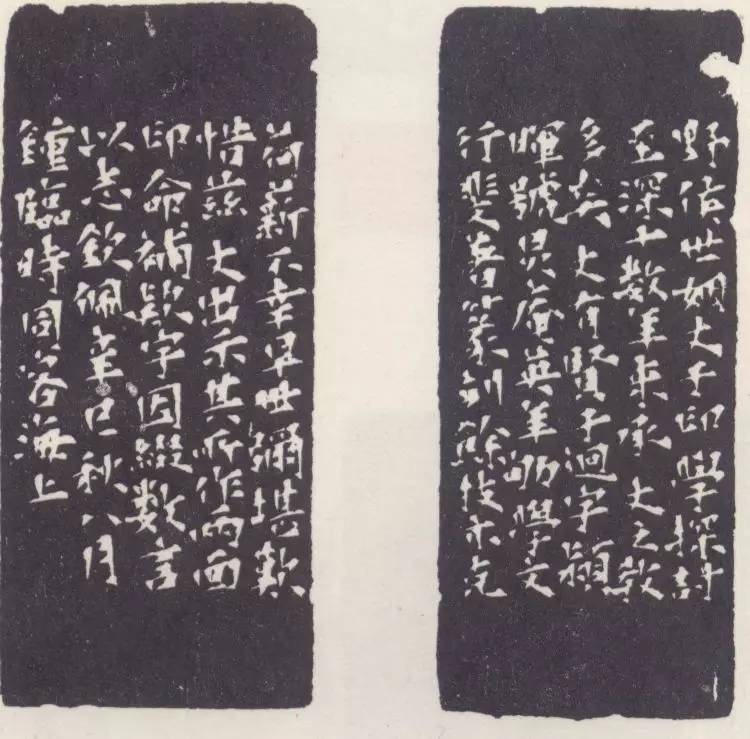 野侯世姻丈于印學探討
至深十數年來承丈之教
多矣丈有賢子迴字潁
暉號炅盦英年劬學文
行斐篆刻餘技亦克
荷薪不幸早世彌堪歎
惜茲丈出示其所作兩面
印命補款字因綴數言
以志欽佩辛巳秋八月
鍾臨時同客海上